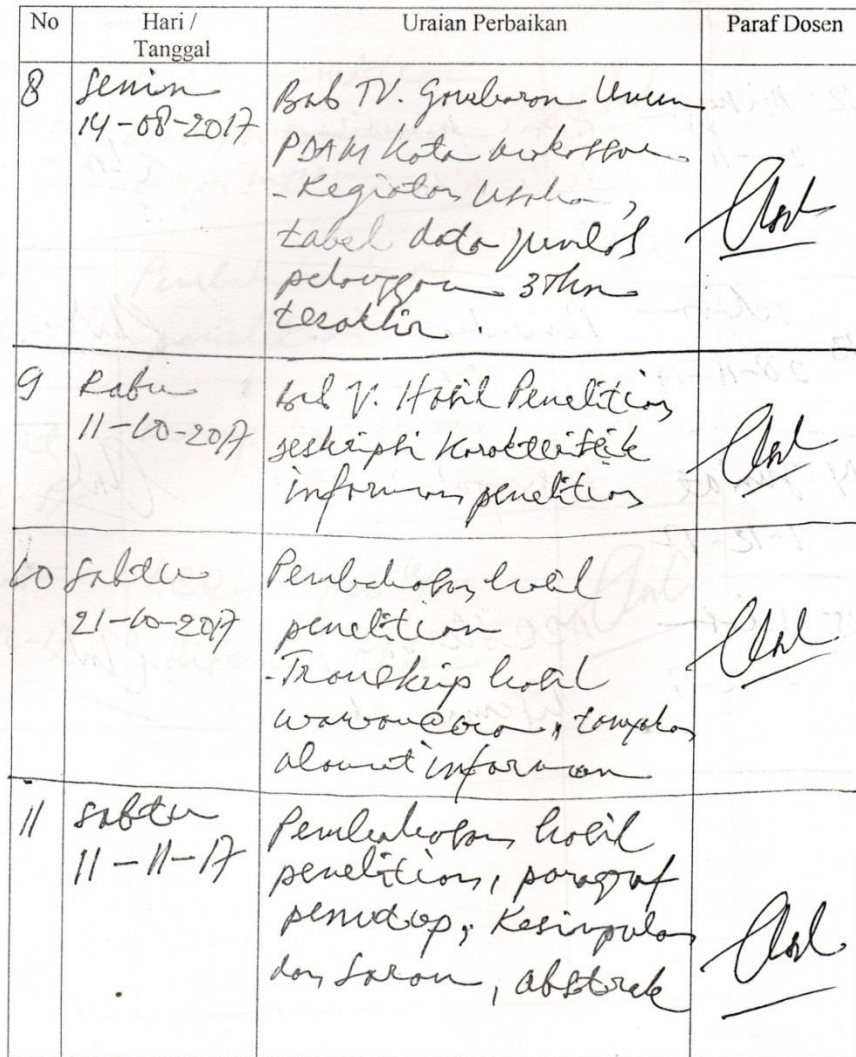 No Hari / Tanggal Uraian Perbaikan Paraf Dosen
8 Senin
14-08-2017
Bab IV. Gambaran Umum
PDAM Kota Makassar
- Kegiatan Usaha,
tabel data jumlah
pelanggan 3 thn
terakhir.
9 Rabu
11-10-2017
Bab V. Hasil Penelitian
deskripsi karakteristik
informan penelitian
10 Sabtu
21-10-2017
Pembahasan hasil
penelitian
- Transkrip hasil
wawancara, tanpa
alamat informan
11 Sabtu
11-11-17
Pembahasan hasil
penelitian, paragraf
penutup, Kesimpulan
dan Saran, abstrak